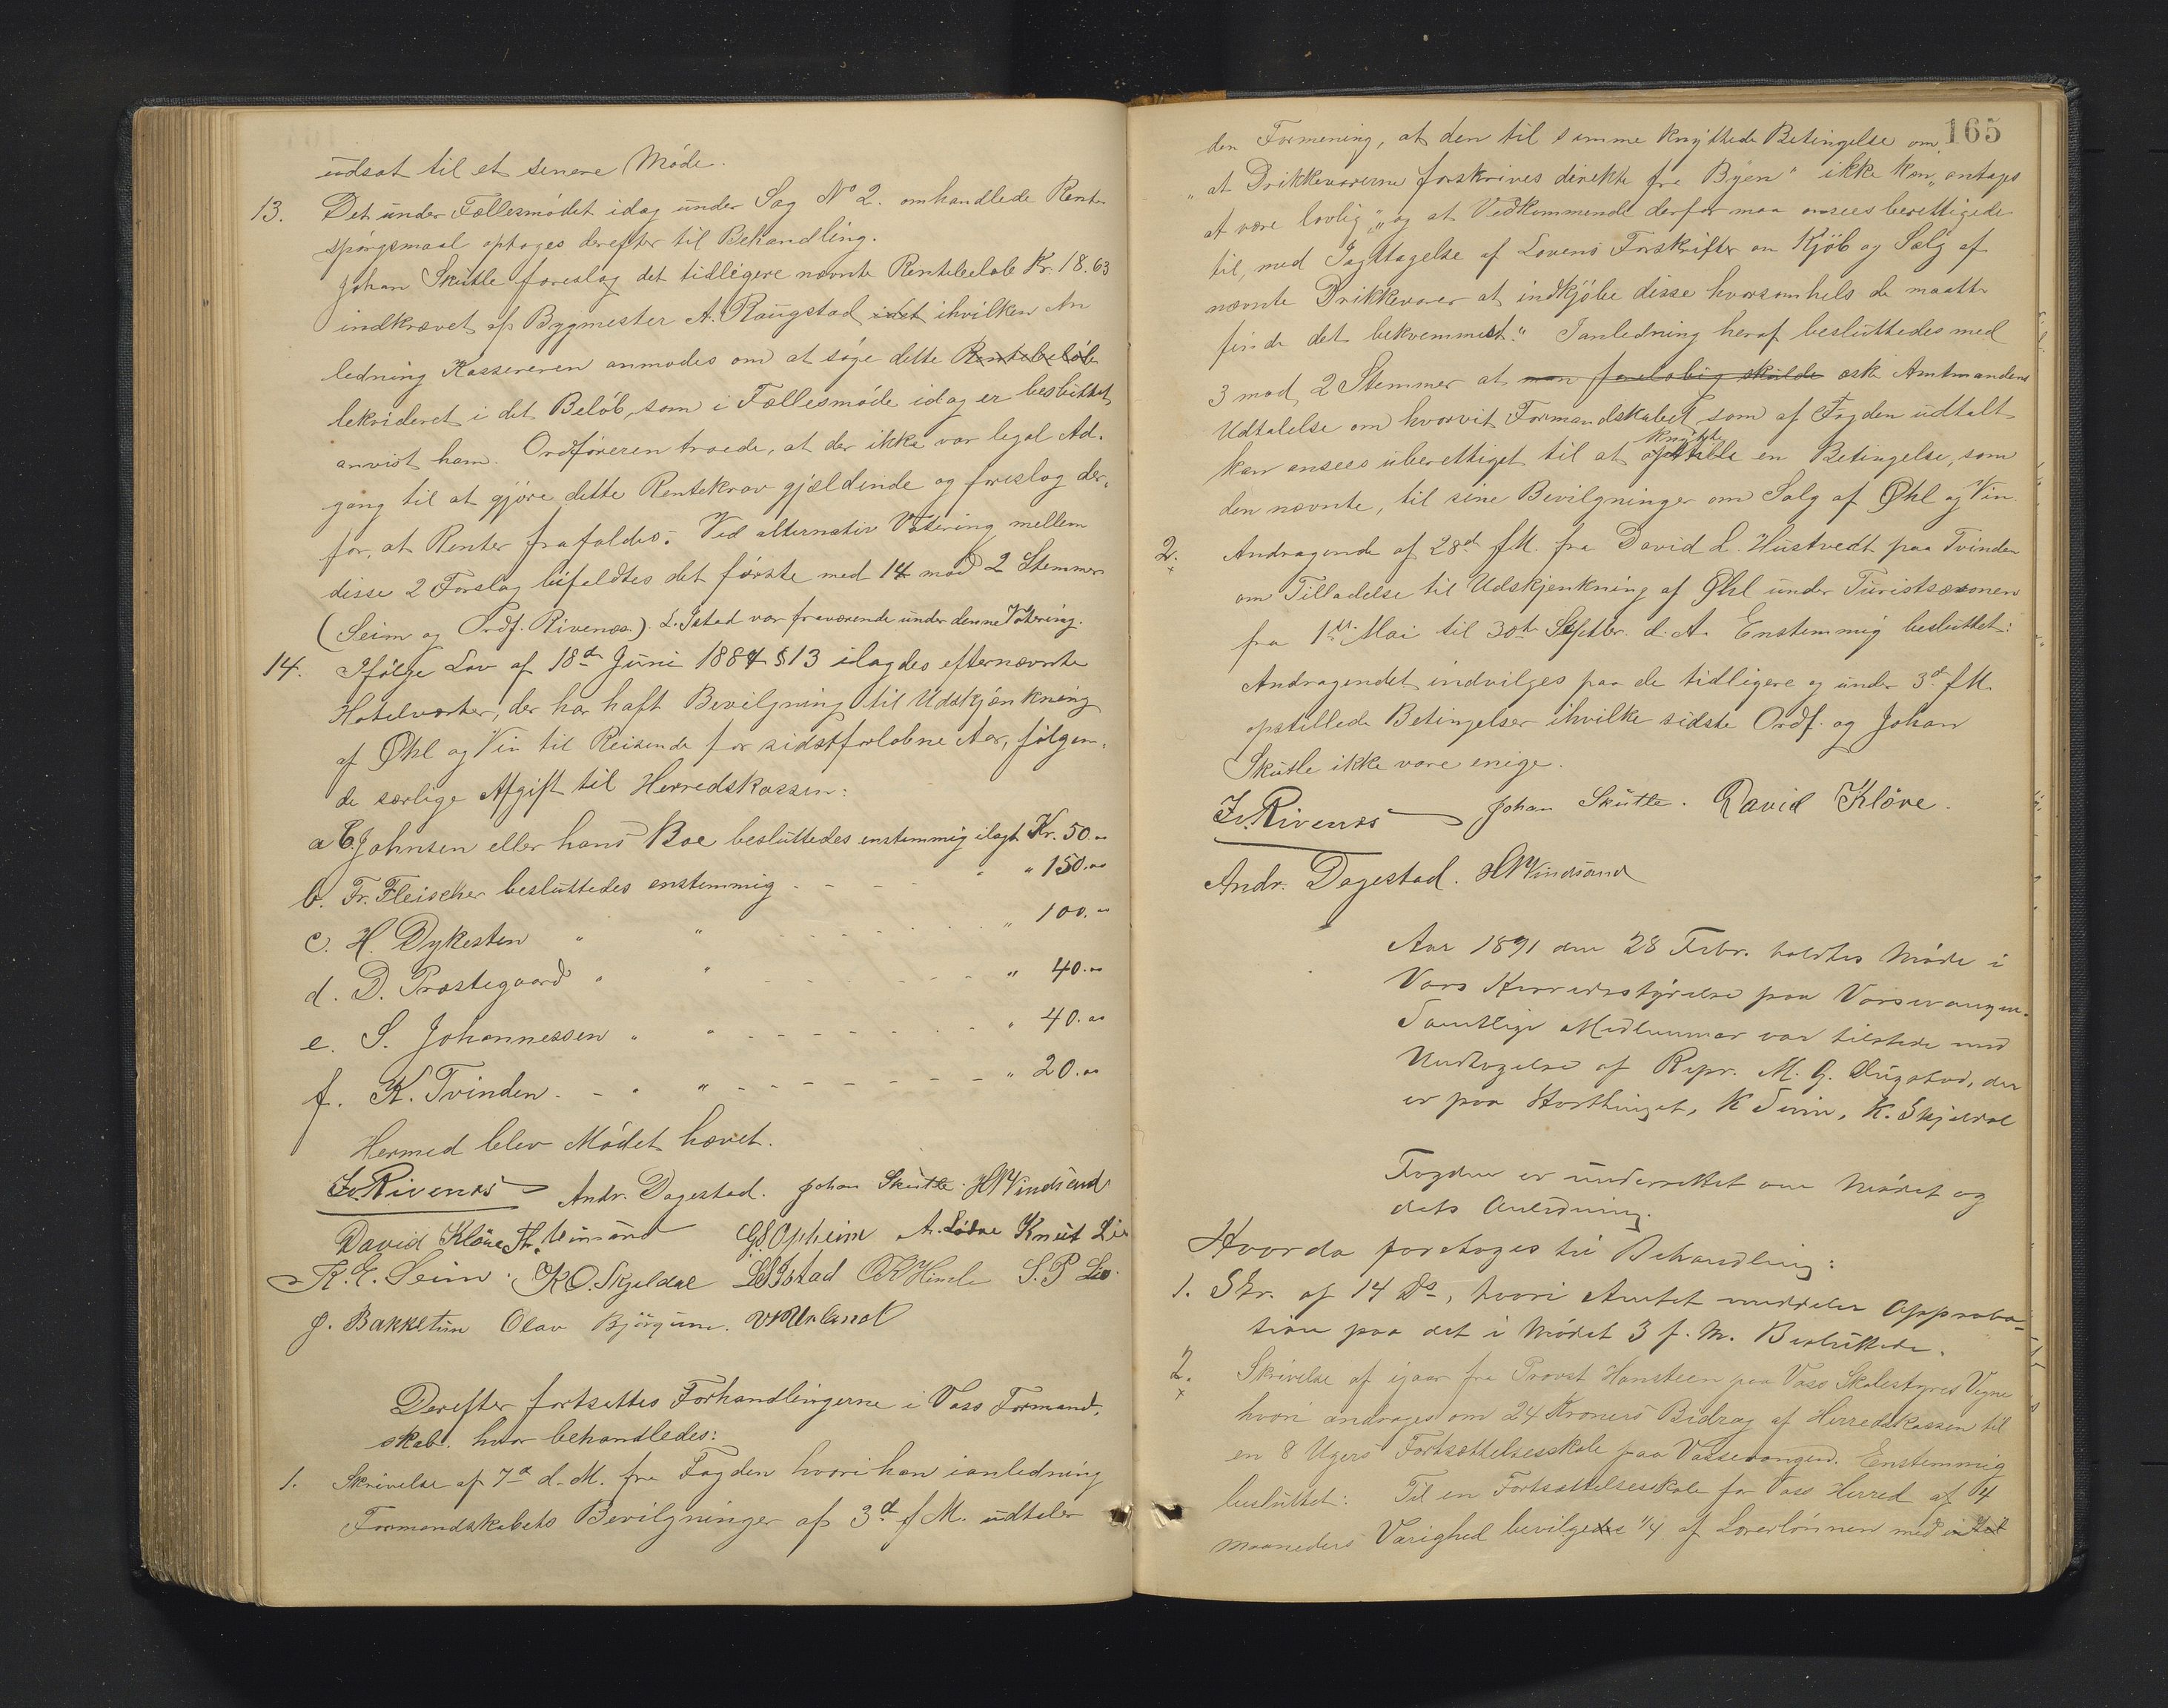 udsat til et senere Møde.
13. Det under Fællesmødet idag under Sag No 2. omhandlede Rente-
spørgsmaal optages derefter til Behandling.
Johan Skutle foreslog det tidligere nævnte Rentebeløb Kr. 18.63
indkrævet af Bygmester A. Raugstad idet ihvilken An
ledning Kassereren anmodes om at søge dette Rentebeløb
likvideret i det Beløb, som i Fællesmøde idag er besluttet
anvist ham. Ordføreren troede, at der ikke var legal Ad-
gang til at gjøre dette Rentekrav gjældende og foreslog der-
for, at Renter frafaldes. Ved alternativ Votering mellem
disse 2 Forslag bifaldtes det første med 14 mod 2 Stemmer
(Seim og Ordf. Rivenæs). L. Istad var fraværende under denne Votering.
14. Ifølge Lov af 18de Juni 1884 § 13 ilagdes efternævnte
Hotelverter, der har haft Bevilgning til Udskjænkning
af Øhl og Vin til Reisende for sidstforløbne Aar, følgen-
de særlige Afgift til Herredskassen:
a C. Johnsen eller hans Boe besluttedes enstemmig ilagt Kr. 50.00
b. Fr. Fleischer besluttedes enstemmig - - - - " " 150.00
c. H. Dykesten " " - - - - - - " 100.00
d. D. Præstegaard " " - - - - - - " 40.00
e. S. Johannessen " " - - - - - - " 40.00
f. K. Tvinden. - " " - - - - - - - " 20.00
Hermed blev Mødet hævet.
Iv. Rivenæs Andr. Dagestad. Johan Skutle. H N Vindsand
David Kløve Th. Vinsand G. S. Opheim A. Lødve Knut Lie
K. E. Seim. K O. Skjeldal L S Istad O K Himle S. P Lie.
J. Bakketun Olav Bjørgum. V Urland
Derefter fortsattes Forhandlingerne i Voss Formand-
skab. hvor behandledes:
1. Skrivelse af 7de d. M. fra Fogden hvori han ianledning
Formandskabets Bevilgninger af 3de f M. udtaler
165
den Formening, at den til samme knyttede Betingelse om
"at Drikkevarerne forskrives direkte fra Byen" ikke kan "antages
at være lovlig" "og at Vedkommende derfor maa ansees berettigede
til, med Iagttagelse af Lovens Forskrifter om Kjøb og Salg af
nævnte Drikkevarer at indkjøbe disse hvorsomhels de maatte
finde det bekvemmest." Ianledning heraf besluttedes med
3 mod 2 Stemmer at man foreløbig skulde æske Amtmandens
Udtalelse om hvorvit Formandskabet som af Fogden udtalt
kan ansees uberettiget til at opstille knytte en Betingelse, som
den nævnte, til sine Bevilgninger om Salg af Øhl og Vin.
2. Andragende af 28de f M. fra David L. Hustvedt paa Tvinden
x om Tilladelse til Udskjenkning af Øhl under Turistsæsonen
fra 1ste Mai til 30te Septbr. d. A. Enstemmig besluttet:
Andragendet indvilges paa de tidligere og under 3de f M.
opstillede Betingelser ihvilke sidste Ordf. og Johan
Skutle ikke vare enige.
Iv. Rivenæs Johan Skutle. David Kløve.
Andr. Dagestad. H N Vindsand
Aar 1891 den 28 Febr. holdtes Møde i
Voss Herredsstyrelse paa Vossevangen.
Samtlige Medlemmer var tilstede med
Undtagelse af Repr. M. G. Dugstad, der
er paa Storthinget, K Seim, K. Skjeldal
Fogden er underrettet om Mødet og
dets Anledning.
Hvorda foretoges til Behandling:
1. Skr. af 14 Ds, hvori Amtet meddeler Approba-
tion paa det i Mødet 3 f. M. Besluttede.
2. Skrivelse af igaar fra Provst Hansteen paa Voss Skolestyres Vegne
x hvori andrages om 24 Kroners Bidrag af Herredskassen til
en 8 Ugers Fortsættelsesskole paa Vossevangen. Enstemmig
besluttet: Til en Fortsættelsesskole for Voss Herred af 4
maaneders Varighed bevilgedes 1/4 af Lærerlønnen med intil